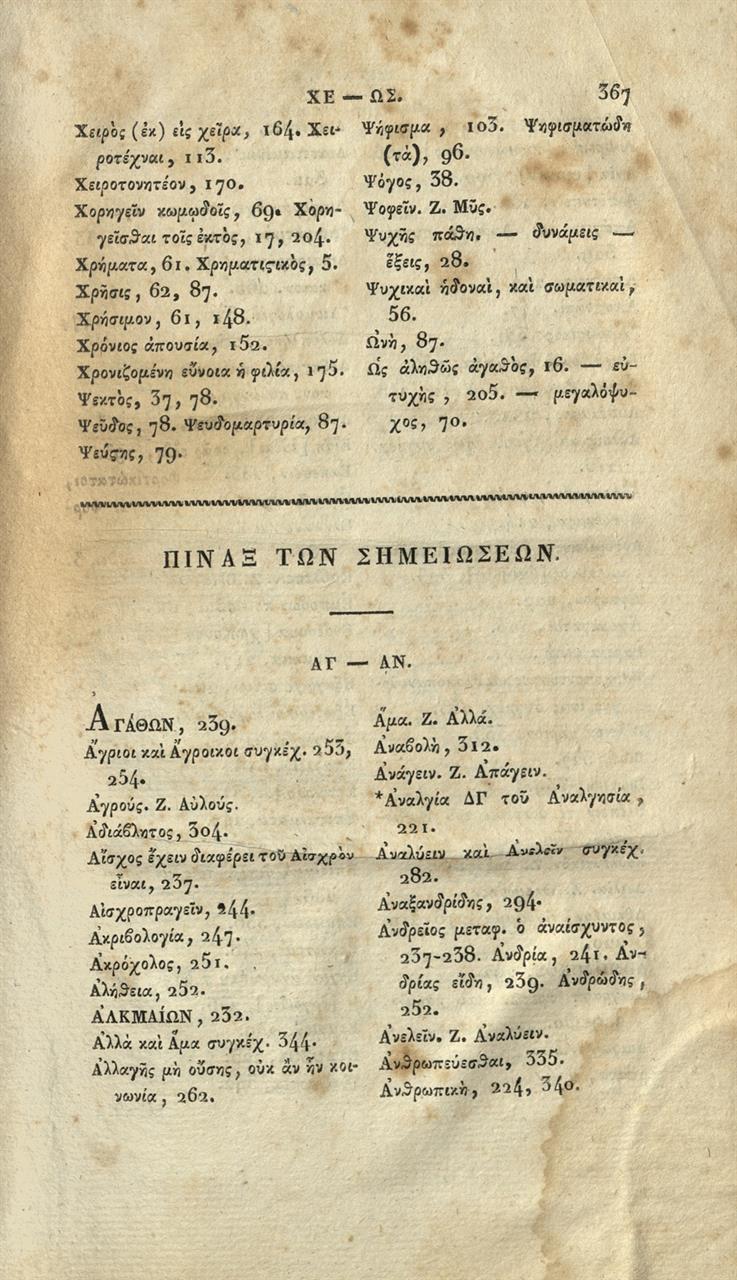 ΧΕ — ΩΣ. 367
Χειρὸς (ἐκ) εἰς χεῖρα, 164. Χει-
ροτέχναι, 113.
Χειροτονητέον, 170.
Χορηγεῖν κωμῳδοῖς, 69. Χορη-
γεῖσθαι τοῖς ἐκτὸς, 17, 204.
Χρήματα, 61. Χρηματιςικὸς, 5.
Χρῆσις, 62, 87.
Χρήσιμον, 61, 148.
Χρόνιος ἀπουσία, 152.
Χρονιζομένη εὔνοια ἡ φιλία, 175.
Ψεκτὸς, 37, 78.
Ψεῦδος, 78. Ψευδομαρτυρία, 87.
Ψεύςης, 79.
Ψήφισμα, 103. Ψηφισματώδη
(τὰ), 96.
Ψόγος, 38.
Ψοφεῖν. Ζ. Μῦς.
Ψυχῆς πάθη. — δυνάμεις —
ἕξεις, 28.
Ψυχικαὶ ἡδοναὶ, καὶ σωματικαὶ,
56.
Ὠνὴ, 87.
Ὡς ἀληθῶς ἀγαθὸς, 16. — εὐ-
τυχὴς, 205. — μεγαλόψυ-
χος, 70.
ΠΙΝΑΞ ΤΩΝ ΣΗΜΕΙΩΣΕΩΝ.
ΑΓ — ΑΝ.
ἈΓΆΘΩΝ, 239.
Ἄγριοι καὶ Ἄγροικοι συγκέχ. 253,
254.
Ἀγρούς. Ζ. Αὐλούς.
Ἀδιάβλητος, 304.
Αἶσχος ἔχειν διαφέρει τοῦ Αἰσχρὸν
εἶναι, 237.
Αἰσχροπραγεῖν, 244.
Ἀκριβολογία, 247.
Ἀκρόχολος, 251.
Ἀλήθεια, 252.
ἈΛΚΜΑΊΩΝ, 232.
Ἀλλὰ καὶ Ἅμα συγκέχ. 344.
Ἀλλαγῆς μὴ οὔσης, οὐκ ἂν ἦν κοι-
νωνία, 262.
Ἅμα. Ζ. Ἀλλά.
Ἀναβολὴ, 312.
Ἀνάγειν. Ζ. Ἀπάγειν.
*Ἀναλγία ΔΓ τοῦ Ἀναλγησία,
221.
Ἀναλύειν καὶ Ἀνελεῖν συγκέχ.
282.
Ἀναξανδρίδης, 294.
Ἀνδρεῖος μεταφ. ὁ ἀναίσχυντος,
237-238. Ἀνδρία, 241. Ἀν-
δρίας εἴδη, 239. Ἀνδρώδης,
252.
Ἀνελεῖν. Ζ. Ἀναλύειν.
Ἀνθρωπεύεσθαι, 335.
Ἀνθρωπικὴ, 224, 340.